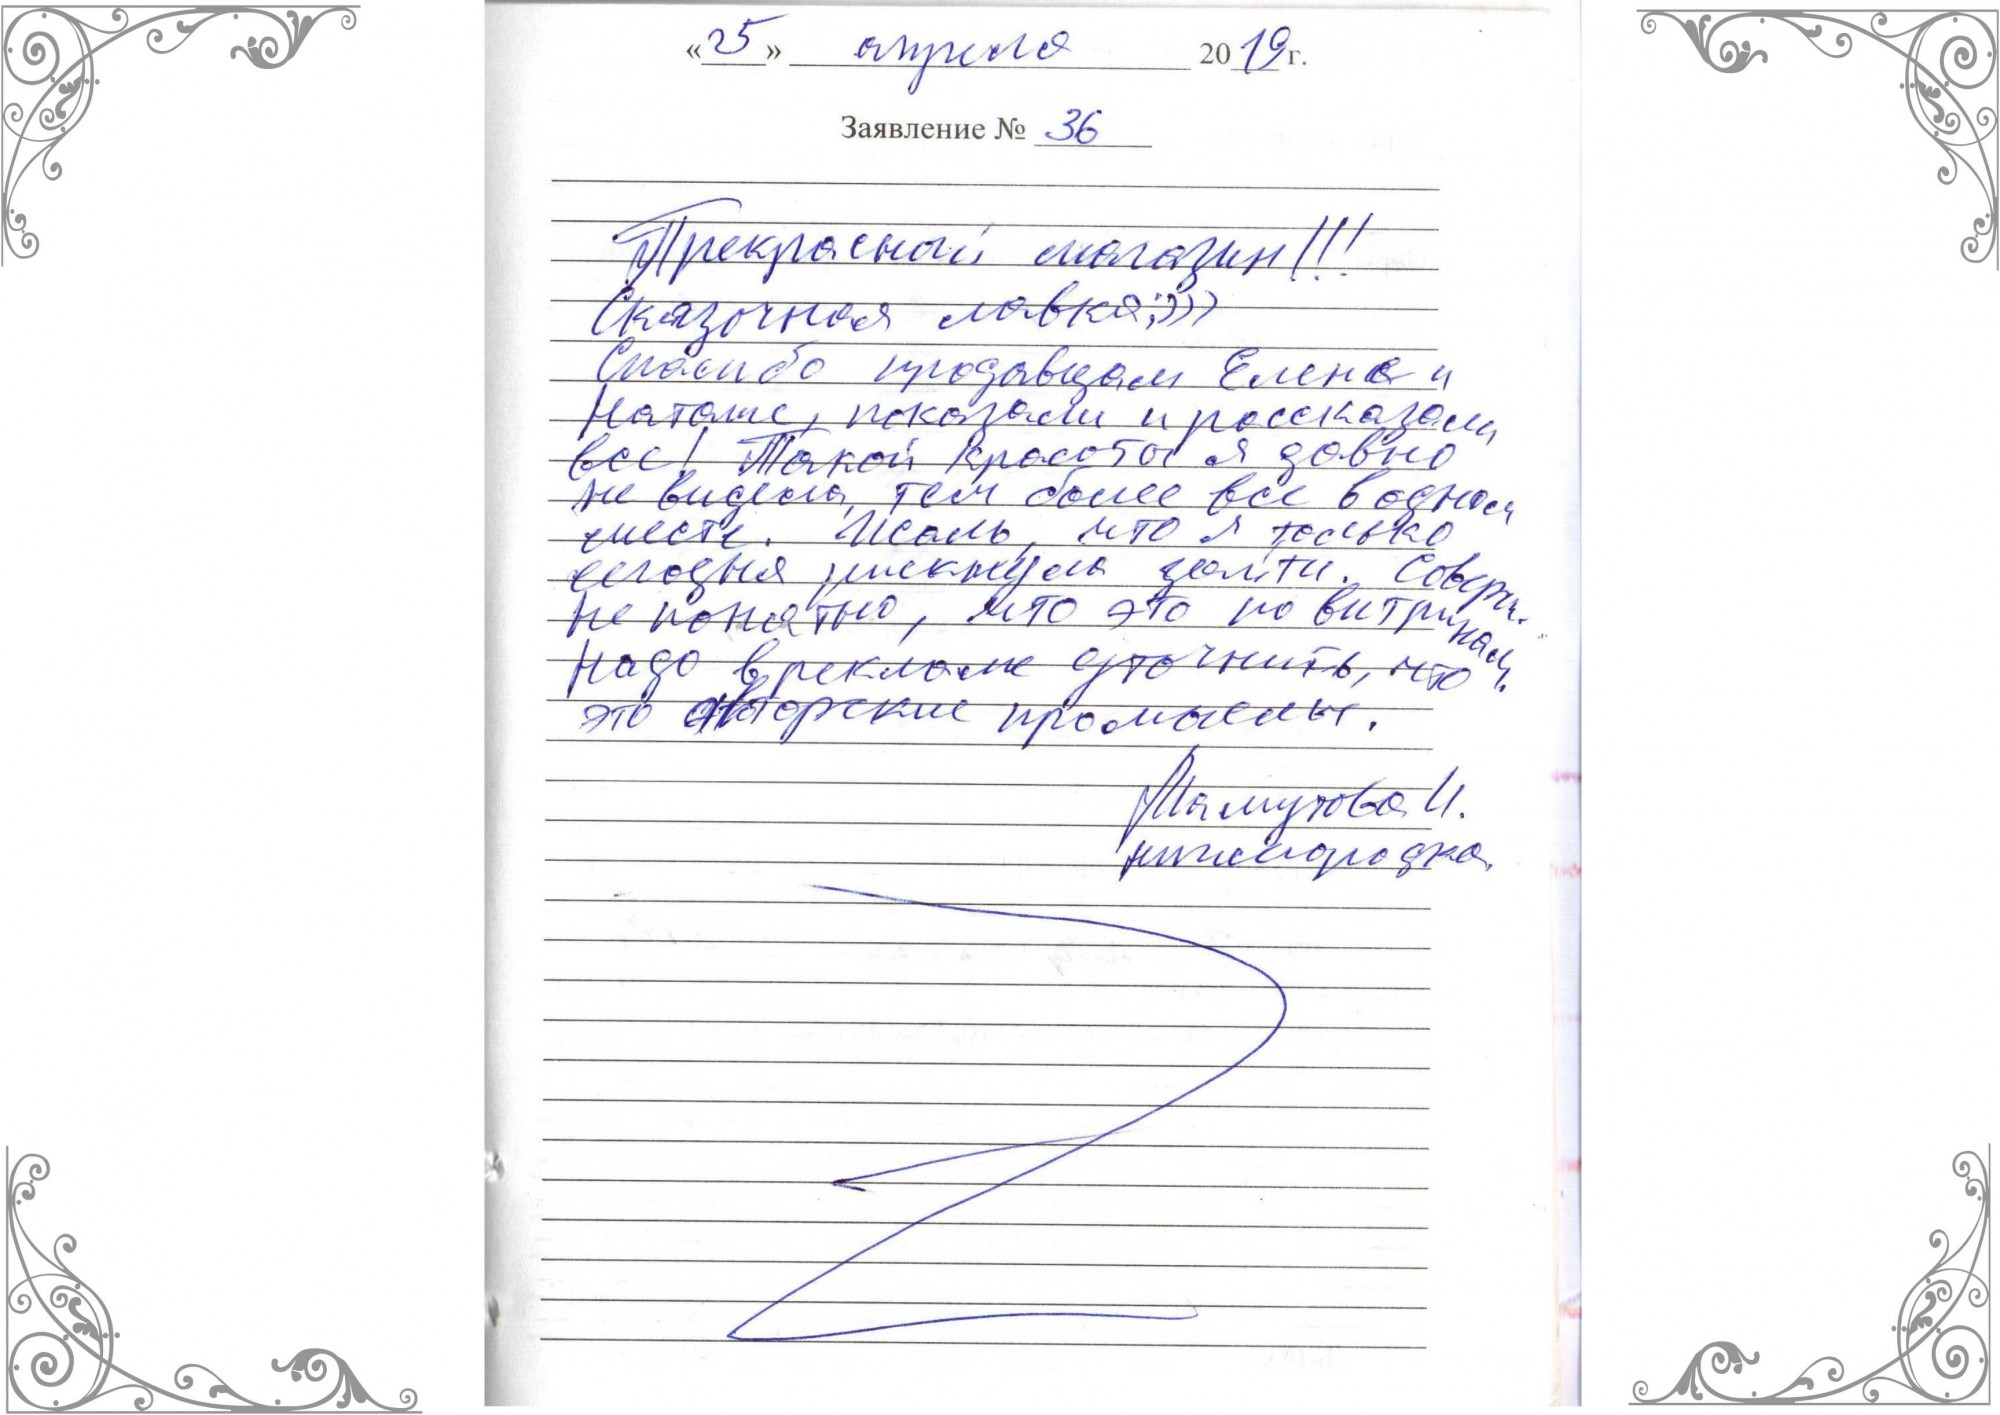 «25» апреля 2019 г.
Заявление № 36
Прекрасный магазин!!!
Сказочная лавка:)))
Спасибо продавцам Елене и
Наташе, показали и рассказали
все! Такой красоты я давно
не видела, тем более все в одном
месте. Жаль, что я только
сегодня рискнула зайти. Соверш.
не понятно, что это по витринам.
Надо в рекламе уточнить, что
это авторские промыслы.
И.
нижегородка.